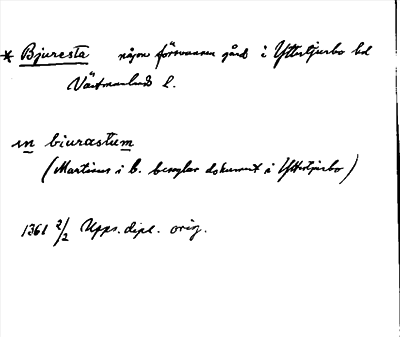 * Bjuresta någon försvunnen gård i Yttertjurbo hd
Västmanlands l.
in biuræstum
(Martinus i b. beseglar dokument i Yttertjurbo)
1361 2/2 Upps. dipl. orig.